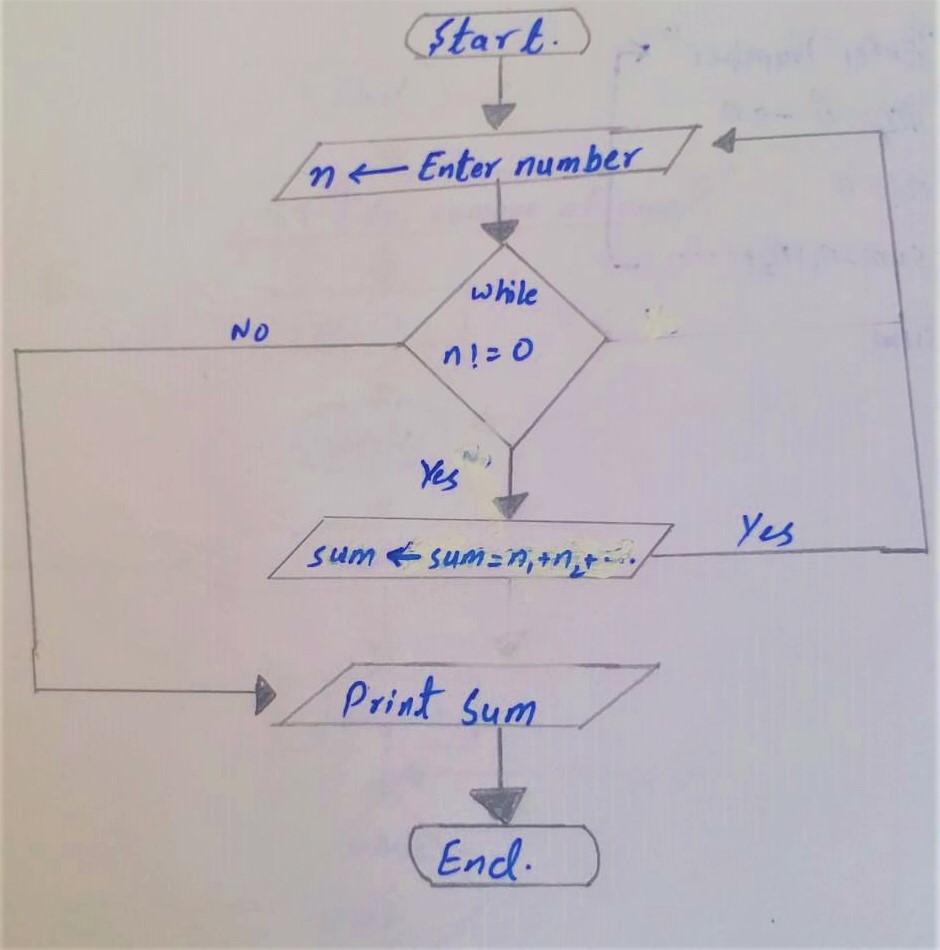 Start.
n ← Enter number
while
n != 0
NO
Yes
sum ← sum = n₁+n₂+....
Yes
Print Sum
End.